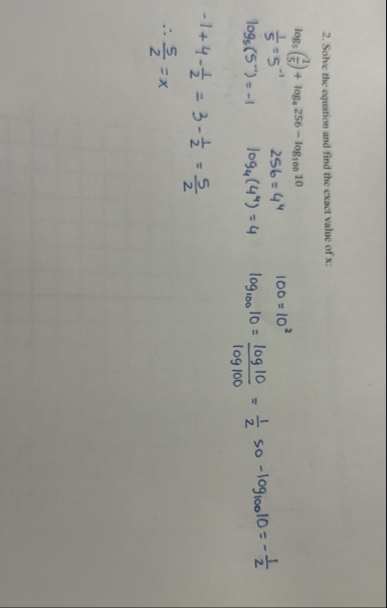 2. Solve the equation and find the exact value of x:
log₅(1/5) + log₄ 256 − log₁₀₀ 10
1/5 = 5⁻¹ 256 = 4⁴ 100 = 10²
log₅(5⁻¹) = -1 log₄(4⁴) = 4 log₁₀₀ 10 = log 10 / log 100 = 1/2 so -log₁₀₀10 = -1/2
-1 + 4 - 1/2 = 3 - 1/2 = 5/2
∴ 5/2 = x